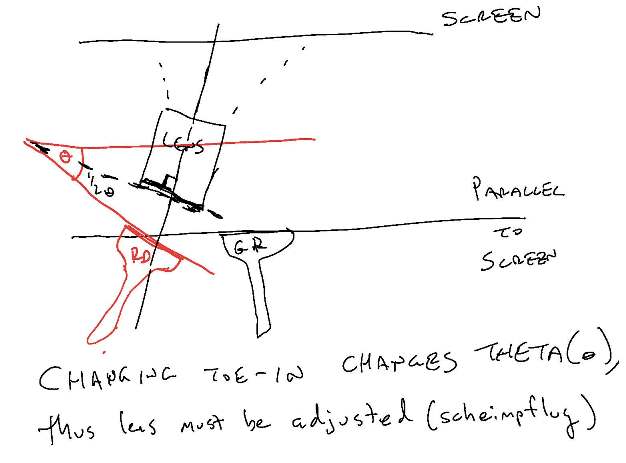 SCREEN
LENS
θ
1/2 θ
PARALLEL
TO
SCREEN
RD
GR
CHANGING TOE-IN CHANGES THETA(θ),
thus lens must be adjusted (scheimpflug)